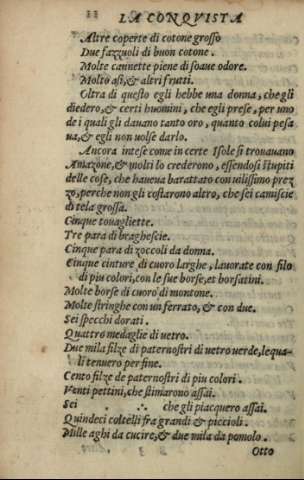 LA CONQVISTA
Altre coperte di cotone grosso
Due fazzuoli di buon cotone.
Molte cannette piene di soaue odore.
Molto asi, & altri frutti.
Oltra di questo egli hebbe una donna, che gli
diedero, & certi huomini, che egli prese, per uno
de i quali gli dauano tanto oro, quanto colui pesa
ua, & egli non uolse darlo.
Ancora intese come in certe Isole si trouauano
Amazone, & molti lo crederono, essendosi stupiti
delle cose, che haueua barattato con uilissimo prez
zo, perche non gli costarono altro, che sei camiscie
di tela grossa.
Cinque touagliette.
Tre para di braghescie.
Cinque para di zoccoli da donna.
Cinque cinture di cuoro larghe, lauorate con filo
di piu colori, con le sue borse, et borsatini.
Molte borse di cuoro di montone.
Molte stringhe con un ferrato, & con due.
Sei specchi dorati.
Quattro medaglie di uetro.
Due mila filze di paternostri di uetro uerde, lequa-
li tenuero per fine.
Cento filze de paternostri di piu colori.
Venti pettini, che stimarono assai.
Sei che gli piacquero assai.
Quindeci coltelli fra grandi & piccioli.
Mille aghi da cucire, & due mila da pomolo.
Otto